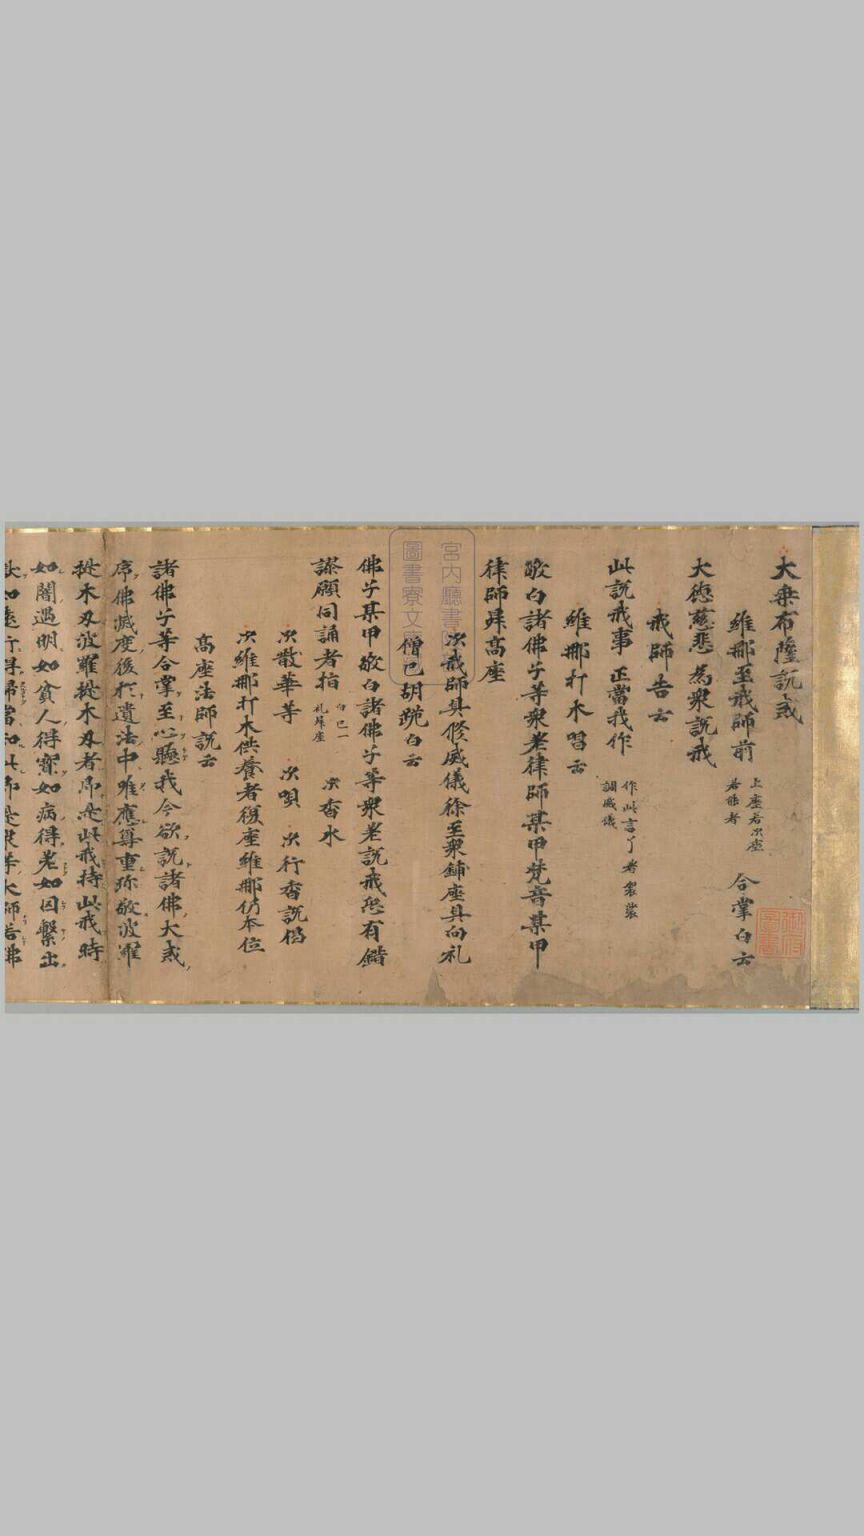 大乗布薩説戒
維那至戒師前 上座若次座 若能者 合掌白云
大徳慈悲為衆説戒
戒師告云
此説戒事正當我作 作此言了着袈裟 調威儀
維那打木唱云
敬白諸佛子等衆差律師某甲梵音某甲
律師昇高座
次戒師具修威儀徐至衆鋪座具向礼
僧已胡跪白云
佛子某甲敬白諸佛子等衆差説戒恐有錯
謬願同誦者指 白已一 礼昇座 次香水
次散華等 次唄 次行香説偈
次維那打木供養者復座維那仍本位
高座法師説云
諸佛子等合掌至心聽我今欲説諸佛大戒
序佛滅度後於遺法中唯應尊重弥敬波羅
提木叉波羅提木叉者即是此戒持此戒時
如闇遇明如貧人得寳如病得差如囚繋出
宮内廳書
圖書寮文